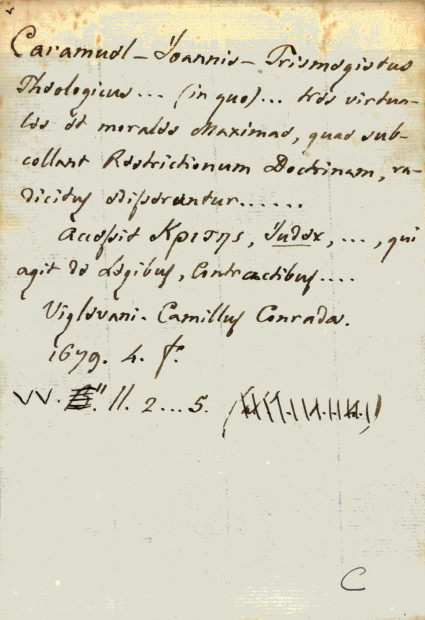 Caramuel - Joannis - Trismegistus
Theologicus ... (in quo) ... tres virtua-
les et morales Maximae, quae sub-
collant Restrictionum Doctrinam, ra-
dicitus disseruntur ......
Accessit Κριτης, Judex, ..., qui
agit de Legibus, Contractibus ....
Viglevani. Camillus Conrada.
1679. 4. f.
VV. 11. 2 ... 5.
C